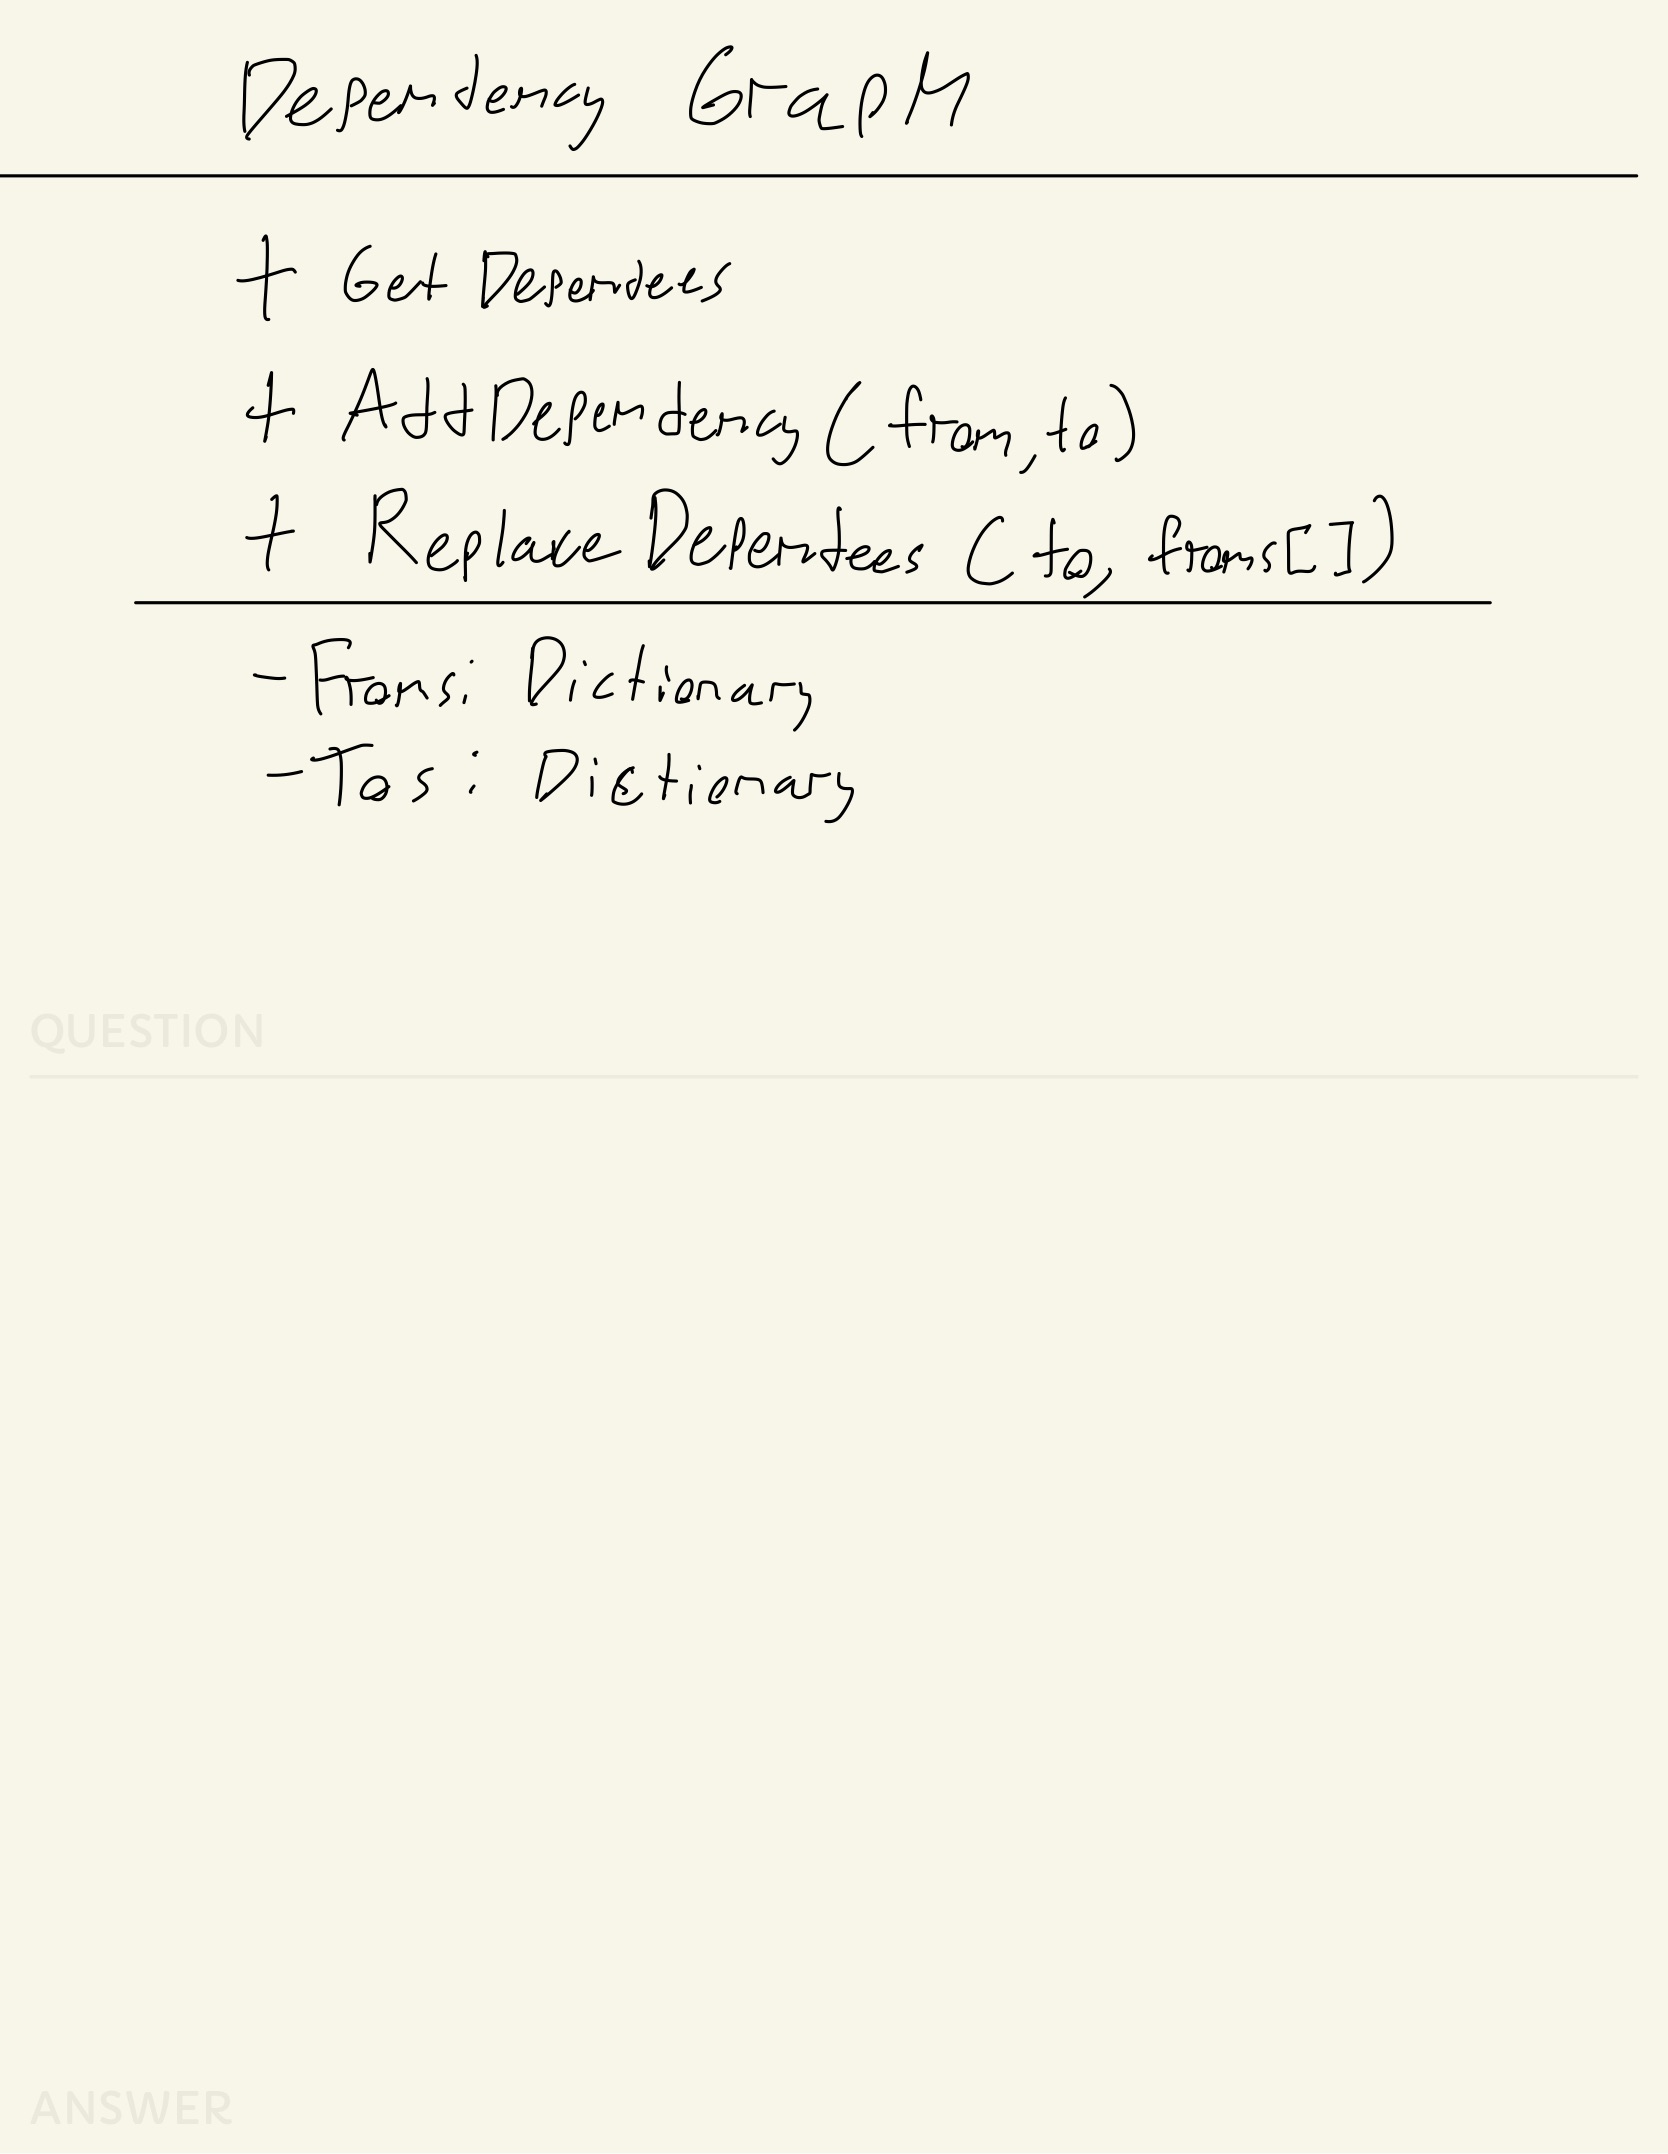 Dependency Graph
+ Get Dependees
+ AddDependency (from, to)
+ Replace Dependees (to, froms[])
- Froms: Dictionary
- Tos: Dictionary
QUESTION
ANSWER